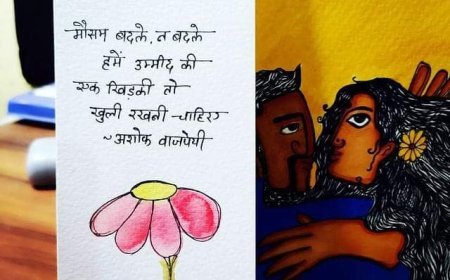 मौसम बदले, न बदले
हमें उम्मीद की
एक खिड़की तो
खुली रखनी चाहिए
~अशोक वाजपेयी